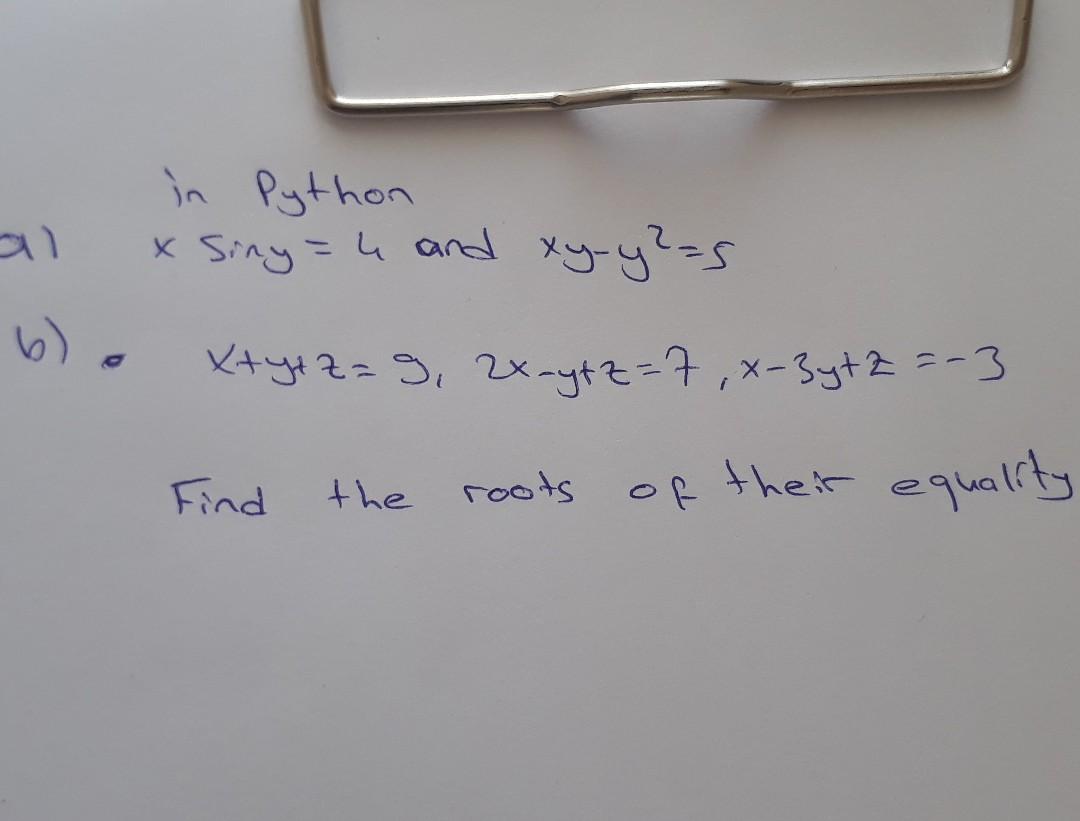 in Python
a) x siny = 4 and xy-y²=5
b) • x+y+z=9, 2x-y+z=7, x-3y+z=-3
Find the roots of their equality